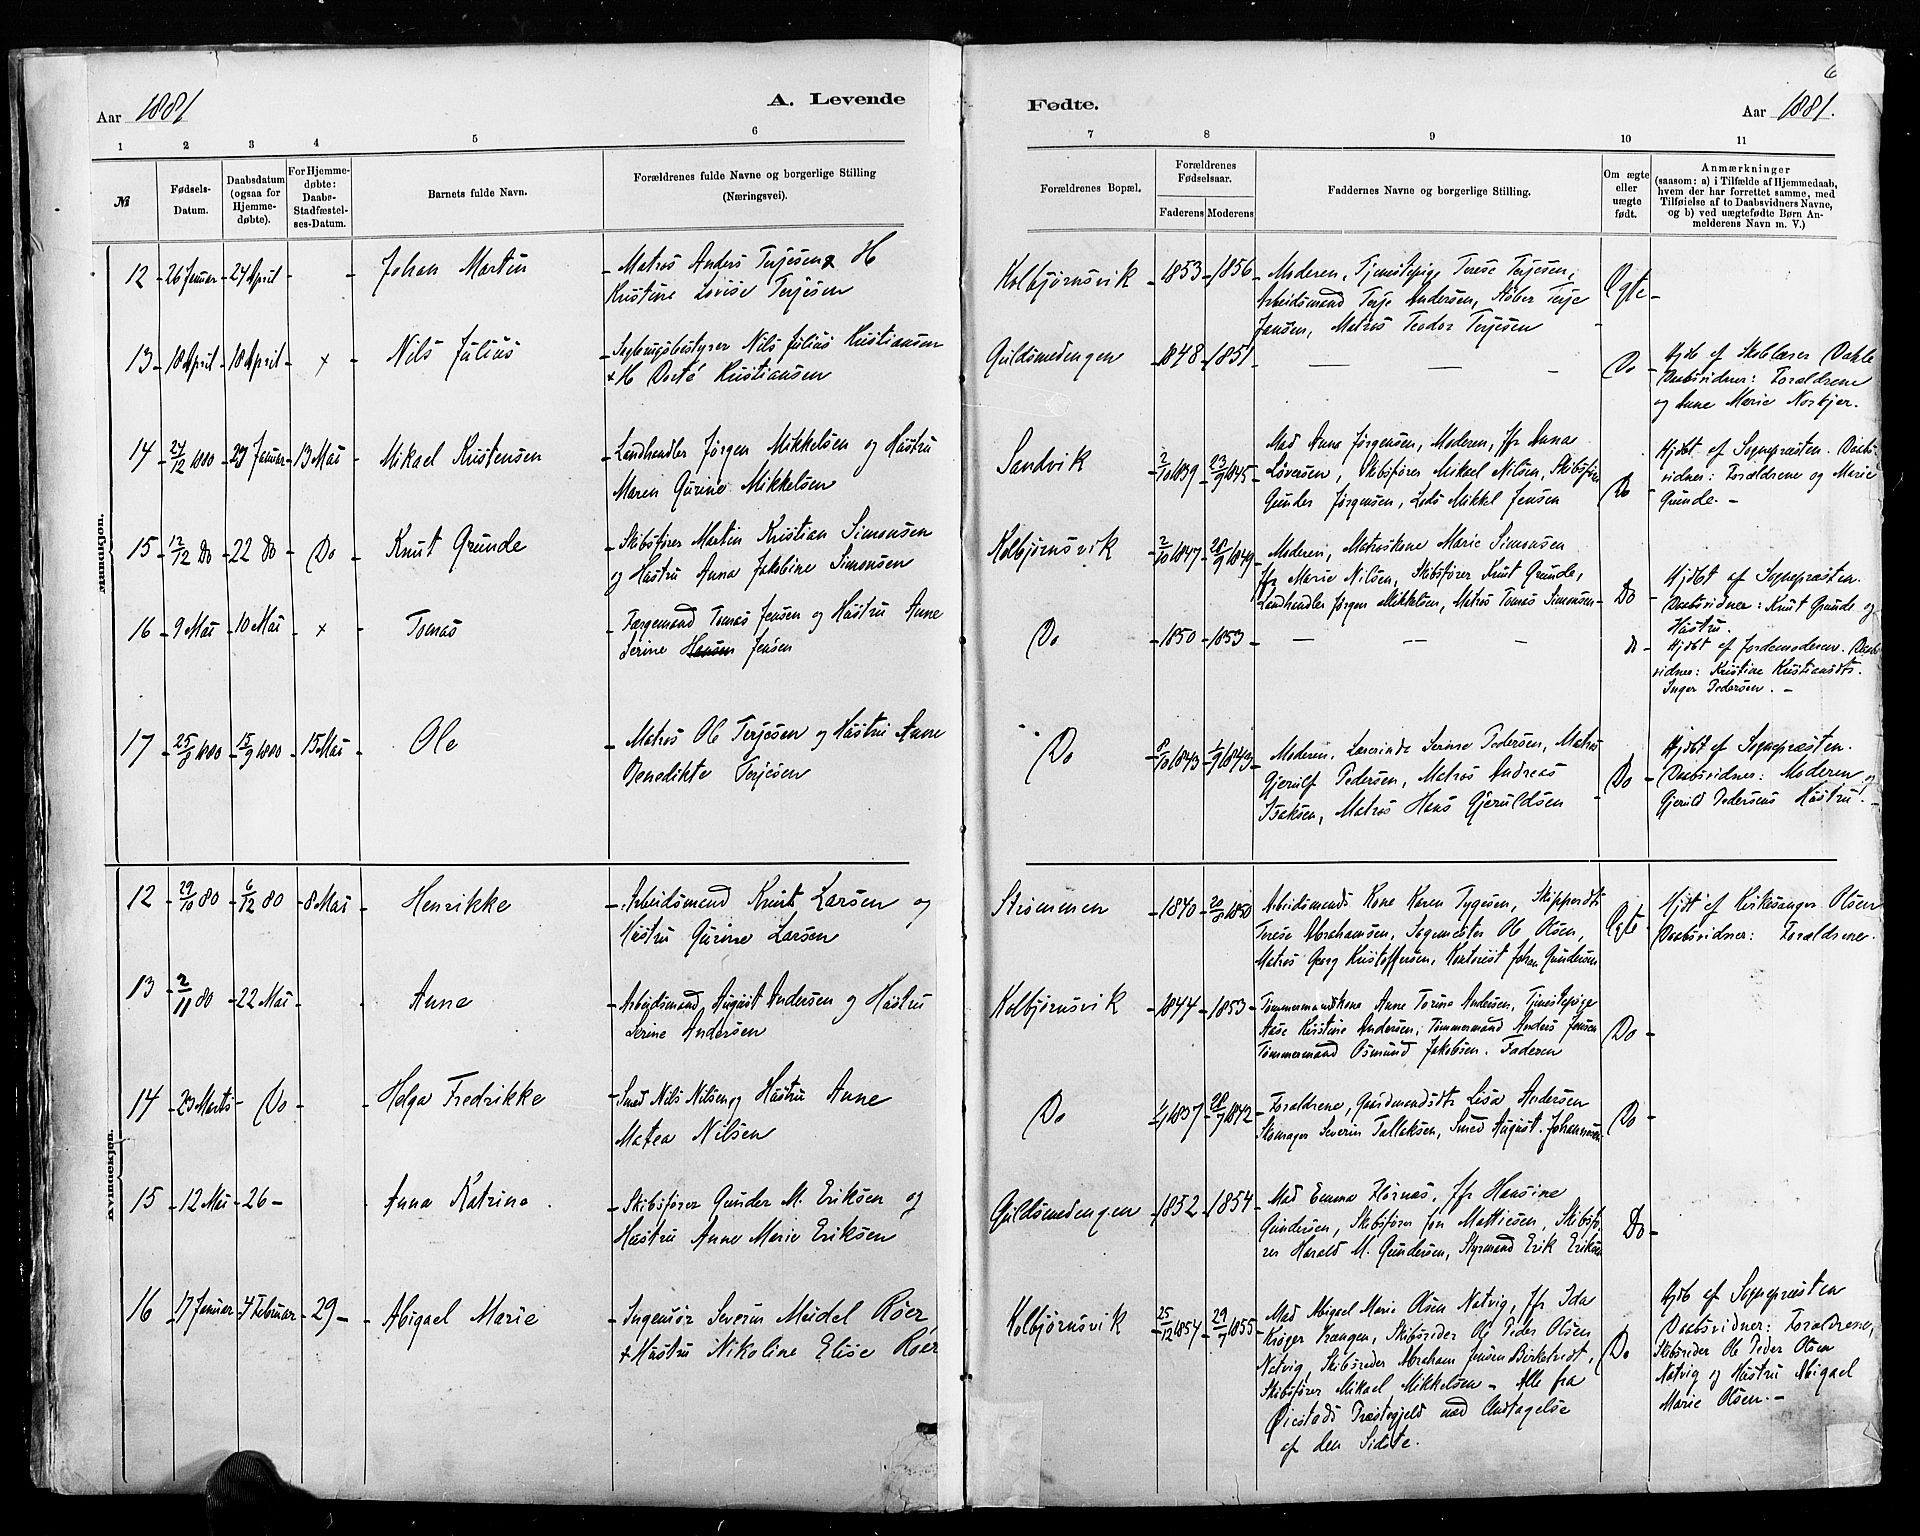 6
Aar 1881
A. Levende
Fødte.
Aar 1881.
1 2 3 4 5 6 7 8 9 10 11
№
Fødsels-Datum.
Daabsdatum (ogsaa for Hjemme-døbte).
For Hjemme-døbte: Daabs-Stadfæstel-ses-Datum.
Barnets fulde Navn.
Forældrenes fulde Navne og borgerlige Stilling
(Næringsvei).
Forældrenes Bopæl.
Forældrenes Fødselsaar.
Faderens Moderens
Faddernes Navne og borgerlige Stilling.
Om ægte eller uægte født.
Anmærkninger
(saasom: a) i Tilfælde af Hjemmedaab,
hvem der har forrettet samme, med
Tilføielse af to Daabsvidners Navne,
og b) ved uægtefødte Børn An-
melderens Navn m. V.)
Mandkjøn.
12 26 Januar 24 April - Johan Martin
Matros Anders Terjesen & H
Kristine Lovise Terjesen
Kolbjørnsvik 1853 1856
Moderen, Tjenestepige Terese Terjesen,
Arbeidsmand Terje Andersen, Støber Terje
Jansen, Matros Teodor Terjesen
Ægte
13 18 April 18 April x Nils Julius
Nils Julius Kristiansen
+ H Dorte Kristiansen
Guldsmedengen 1848 1851
— — -
Do
Hjdb af Skolelærer Dahle
Daabsvidner: Forældrene
og Anne Marie Norkjer.
14 24/12 1880 23 Januar 13 Mai Mikael Kristensen
Landhandler Jørgen Mikkelsen og Hustru
Maren Gurine Mikkelsen
Sandvik 2/10 1839 23/9 1845
Mad Anne Jørgensen, Moderen, Jfr Anna
Løversen, Skibsfører Mikael Nilsen, Skibsfører
Gunder Jørgensen, Lods Mikkel Jensen
Do
Hjdbt af Sognepræsten. Daabs-
vidner: Forældrene og Marie
Grunde. -
15 12/12 Do 22 Do Do Knut Grunde
Skibsfører Martin Kristian Simonsen
og Hustru Anna Jakobine Simonsen
Kolbjørnsvik 2/10 1847 28/9 1849
Moderen, Matroskone Marie Simonsen
Jfr Marie Nilsen, Skibsfører Knut Grunde,
Landhandler Jørgen Mikkelsen, Matros Tomas Simonsen
Do
Hjdbt af Sognepræsten.
Daabsvidner: Knut Grunde og
Hustru.
16 9 Mai 10 Mai x Tomas
Færgemand Tomas Jensen og Hustru Anne
Serine Hansen Jensen
Do 1850 1853
— — —
do
Hjdbt af Jordemoderen. Daabs-
vidner: Kristine Kristiansdtr.
Inger Pedersen. -
17 25/8 1880 15/9 1880 15 Mai Ole
Matros Ole Terjesen og Hustru Anne
Benedikte Terjesen
Do 8/10 1843 1/9 1843
Moderen, Lærerinde Serine Pedersen, Matros
Gjerulf Pedersen, Matros Andreas
Isaksen, Matros Hans Gjeruldsen
Do
Hjdbt af Sognepræsten.
Daabsvidner: Moderen og
Gjeruld Pedersens Hustru.
Kvindekjøn.
12 29/10 80 6/12 80 8 Mai Henrikke
Arbeidsmand Knut Larsen og
Hustru Gurine Larsen
Strømmen 1840 1850
Arbeidsmands Kone Karen Tygesen, Skipperdtr
Terese Abrahamsen, Sagmester Ole Olsen,
Matros Georg Kristoffersen, Kontorist Johan Gundersen
Ægte
Hjdt af Kirkesanger Olsen
Daabsvidner: Forældrene.
13 2/11 80 22 Mai - Anne
Arbeidsmand August Andersen og Hustru
Serine Andersen
Kolbjørnsvik 1844 1853
Tømmermandskone Anne Torine Andersen, Tjenestepige
Aase Kirstine Andersen, Tømmermand Anders Jensen
Tømmermand Osmund Jakobsen. Faderen
Do
14 23 Marts Do Helga Fredrikke
Smed Nils Nilsen og Hustru Anne
Matea Nilsen
Do 1837 28/7 1842
Forældrene, Gaardmandsdtr Lisa Andersen
Skomager Severin Tallaksen, Smed August Johannesen
Do
15 12 Mai 26 - Anna Katrine
Skibsfører Gunder M. Eriksen og
Hustru Anne Marie Eriksen
Guldsmedengen 1852 1854
Mad Emma Flørnæs, Jfr Hansine
Gundersen, Skibsfører Jon Mattiesen, Skibsfø-
rer Harald M. Gundersen, Styrmand Erik Eriksen
Do
16 17 Januar 4 Februar 29 - Abigael Marie
Ingeniør Severin Meidel Røer
+ Hustru Nikoline Elise Røer
Kolbjørnsvik 25/12 1854 29/7 1855
Mad Abigael Marie Olsen Natvig, Jfr Ida
Krøger Vrangen, Skibsreder Ole Peder Olsen
Natvig, Skibsreder Abraham Jensen Birketvedt,
Skibsfører Mikael Mikkelsen - Alle fra
Øiestads Præstegjeld med Undtagelse
af den Sidste.
Do
Hjdb af Sognepræsten
Daabsvidner: Forældrene,
Skibsreder Ole Peder Olsen
Natvig og Hustru Abigael
Marie Olsen. -